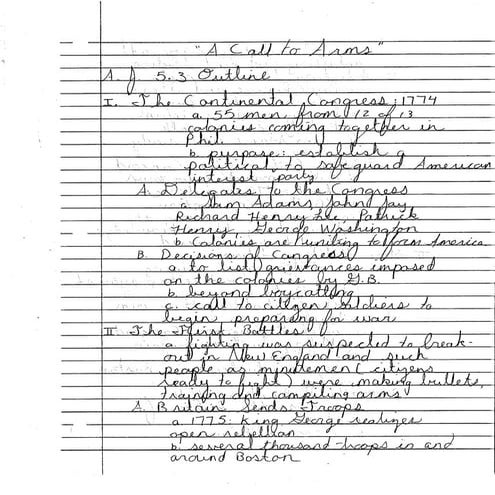 "A Call to Arms"
A. J 5.3 Outline
I. The Continental Congress; 1774
a. 55 men from 12 of 13
colonies coming together in
Phil.
b. purpose: establish a
political to safeguard American
interest party
A. Delegates to the Congress
a. Sam Adams, John Jay,
Richard Henry Lee, Patrick
Henry, George Washington
b. Colonies are uniting to form America
B. Decisions of Congress
a. to list grievances imposed
on the colonies by G.B.
b. beyond boycotting
c. call to citizen soldiers to
begin preparing for war
II The First Battles
a. fighting was suspected to break-
out in New England and such
people as minutemen (citizens
ready to fight) were making bullets,
training and compiling arms
A. Britain Sends Troops
a. 1775: King George realizes
open rebellion
b. several thousand troops in and
around Boston